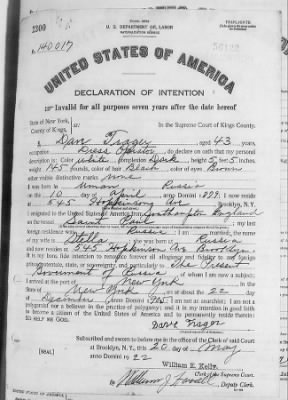 2300
No. 140017
U. S. DEPARTMENT OF LABOR
NATURALIZATION SERVICE
TRIPLICATE
UNITED STATES OF AMERICA
DECLARATION OF INTENTION
Invalid for all purposes seven years after the date hereof
State of New York,
County of Kings,
In the Supreme Court of Kings County.
I, Dave Trager, aged 43 years,
occupation Dress Operator, do declare on oath that my personal
description is: Color white, complexion Dark, height 5 feet 5 inches,
weight 145 pounds, color of hair Black, color of eyes Brown
other visible distinctive marks none
I was born in Uman Russia
on the 10 day of April, anno Domini 1879; I now reside
at 545 Hopkinson Ave Brooklyn, N.Y.
I emigrated to the United States of America from Southampton England
on the vessel Saint Paul; my last
foreign residence was Russia; I am married; the name
of my wife is Stella; she was born in Russia
and now resides at 545 Hopkinson Ave Brooklyn
It is my bona fide intention to renounce forever all allegiance and fidelity to any foreign
prince, potentate, state, or sovereignty, and particularly to The Present
Government of Russia, of whom I am now a subject;
I arrived at the port of New York, in the
State of New York, on or about the 22 day
of December, anno Domini 1905; I am not an anarchist; I am not a
polygamist nor a believer in the practice of polygamy; and it is my intention in good faith
to become a citizen of the United States of America and to permanently reside therein:
SO HELP ME GOD.
Dave Trager
Subscribed and sworn to before me in the office of the Clerk of said Court
at Brooklyn, N. Y., this 20 day of May
anno Domini 1922
[SEAL]
William E. Kelly,
Clerk of the Supreme Court.
By
Deputy Clerk.